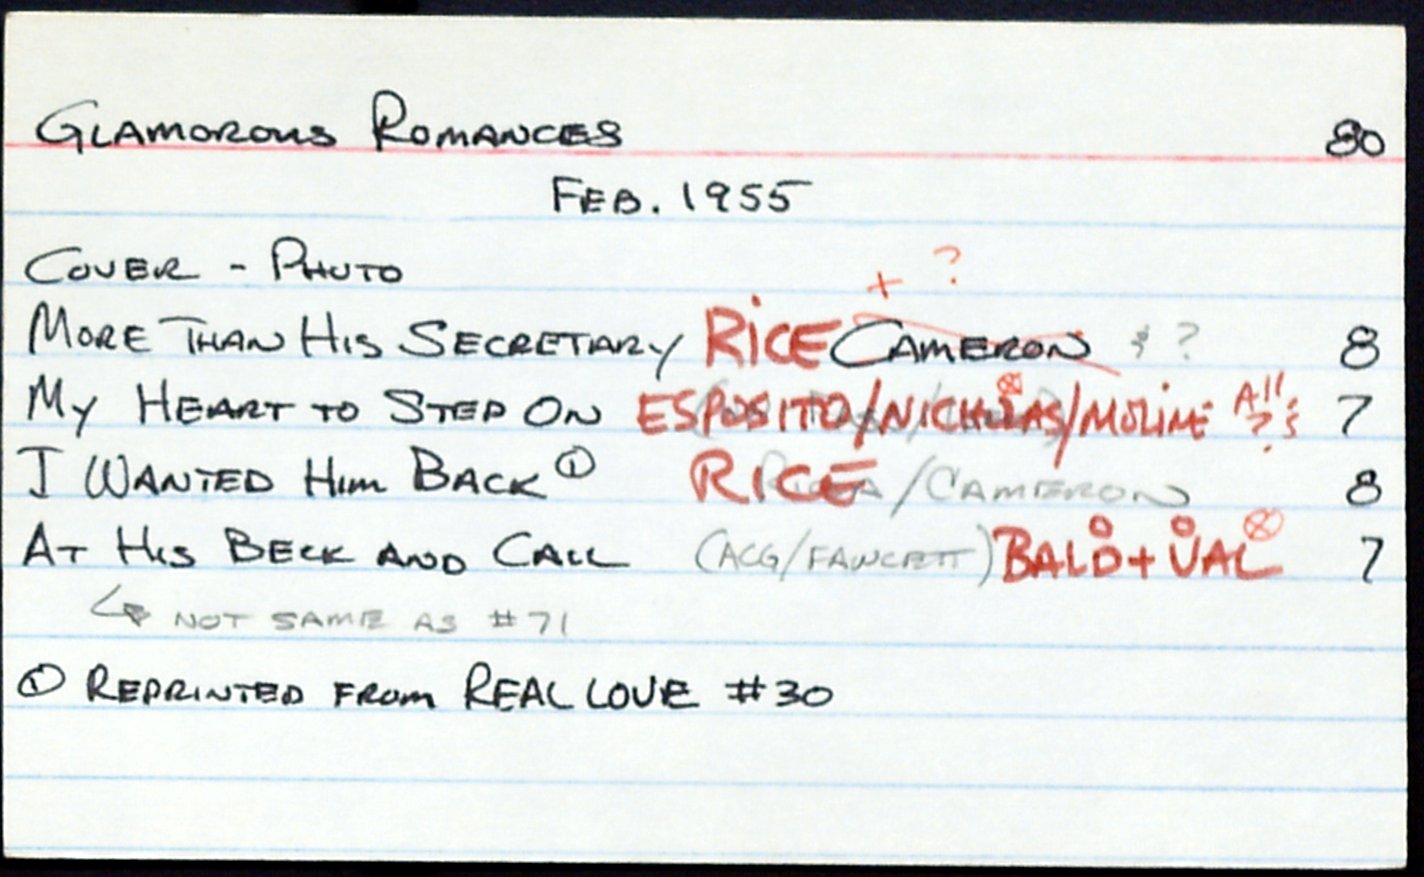 GLAMOROUS ROMANCES 80
FEB. 1955
COVER - PHOTO
+ ?
MORE THAN HIS SECRETARY RICE CAMERON & ? 8
MY HEART TO STEP ON ESPOSITO/NICHOLAS/MOLINE All ? 7
I WANTED HIM BACK ① RICE /CAMERON 8
AT HIS BECK AND CALL (ACG/FAWCETT) BALD + VAL 7
↳ NOT SAME AS #71
① REPRINTED FROM REAL LOVE #30